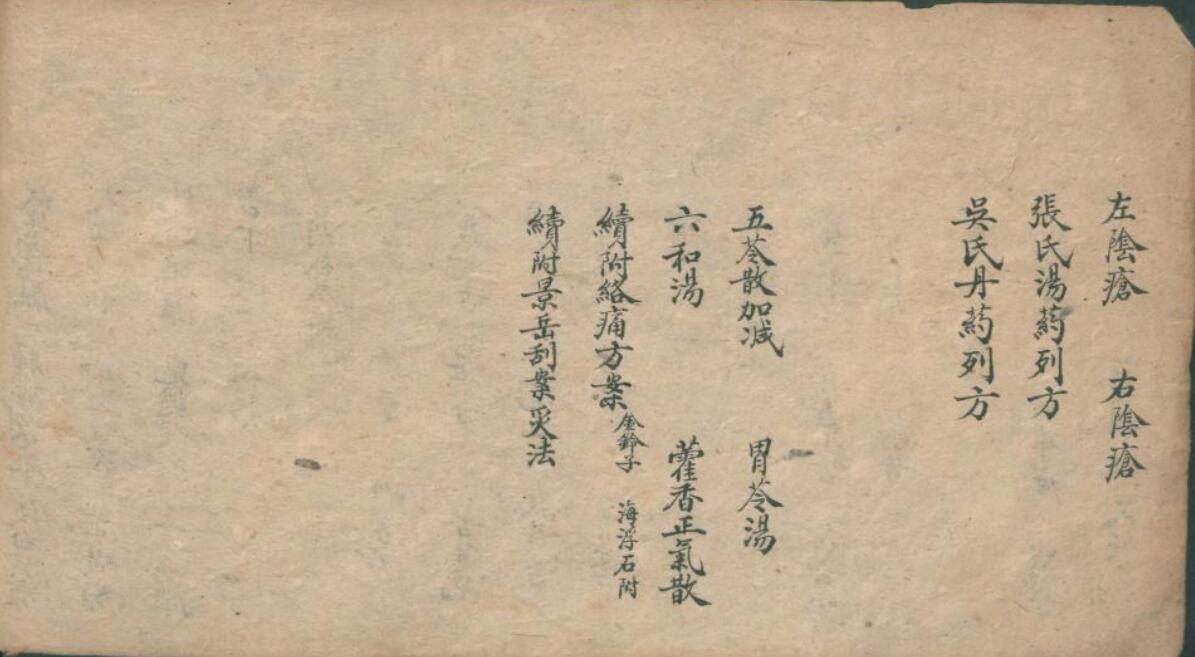 左陰瘡　右陰瘡
張氏湯药列方
吳氏丹药列方
五苓散加减　胃苓湯
六和湯　藿香正氣散
續附絡痛方案 金鈴子 海浮石附
續附景岳刮業災法